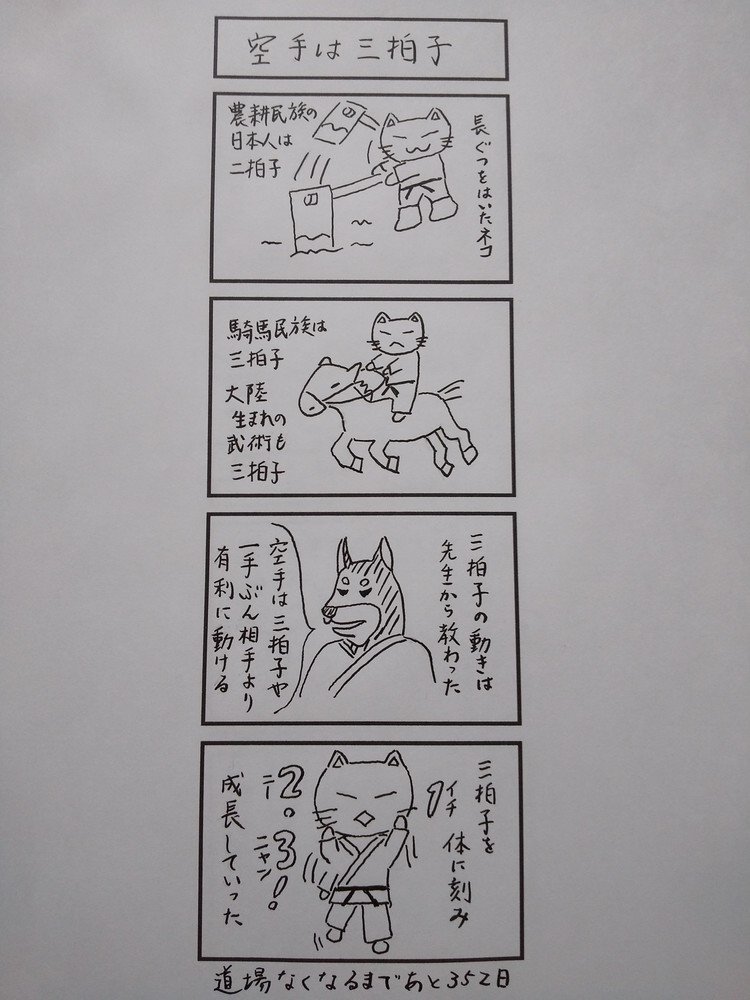 空手は三拍子
長ぐつをはいたネコ
農耕民族の
日本人は
二拍子
の
の
騎馬民族は
三拍子
大陸
生まれの
武術も
三拍子
三拍子の動きは
先生から教わった
空手は三拍子や
一手ぶん相手より
有利に動ける
三拍子を
体に刻み
イチ
1
2。
ニー
3!。
ニャン
成長していった
道場なくなるまであと352日